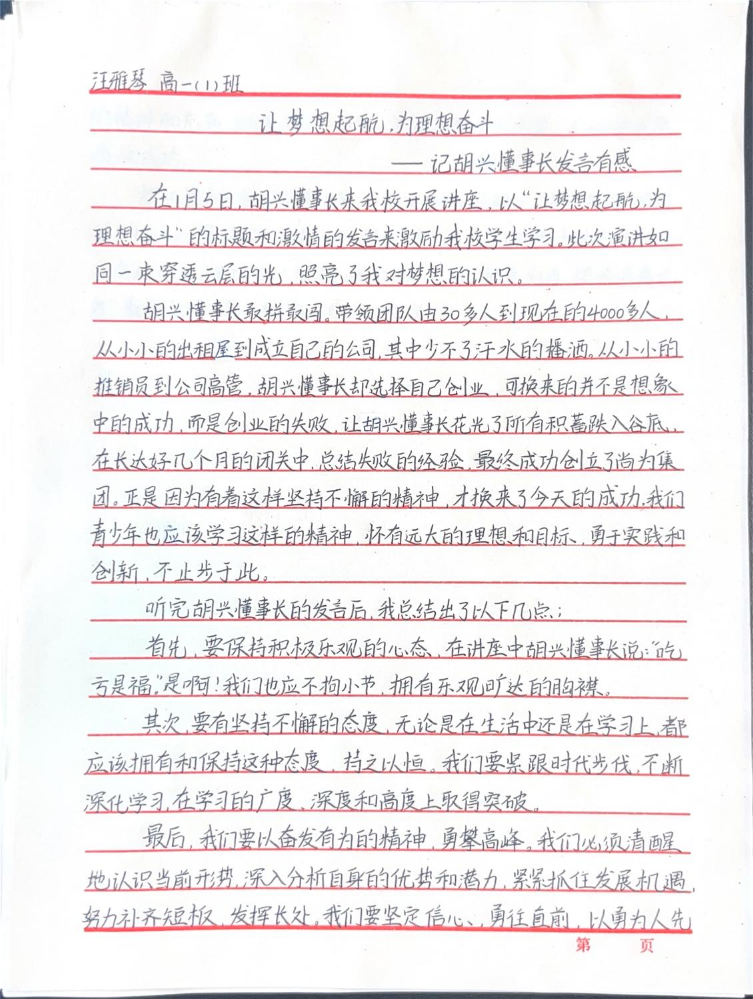 汪雅琴 高一(1)班
让梦想起航,为理想奋斗
——记胡兴懂事长发言有感
在1月5日,胡兴懂事长来我校开展讲座,以“让梦想起航,为
理想奋斗”的标题和激情的发言来激励我校学生学习。此次演讲如
同一束穿透云层的光,照亮了我对梦想的认识。
胡兴懂事长敢拼敢闯。带领团队由30多人到现在的4000多人,
从小小的出租屋到成立自己的公司,其中少不了汗水的播洒。从小小的
推销员到公司高管,胡兴懂事长却选择自己创业,可换来的并不是想象
中的成功,而是创业的失败,让胡兴懂事长花光了所有积蓄跌入谷底,
在长达好几个月的闭关中,总结失败的经验,最终成功创立了尚为集
团。正是因为有着这样坚持不懈的精神,才换来了今天的成功,我们
青少年也应该学习这样的精神,怀有远大的理想和目标、勇于实践和
创新,不止步于此。
听完胡兴懂事长的发言后,我总结出了以下几点:
首先,要保持积极乐观的心态,在讲座中胡兴懂事长说:“吃
亏是福。”是啊!我们也应不拘小节,拥有乐观旷达的胸襟。
其次,要有坚持不懈的态度,无论是在生活中还是在学习上,都
应该拥有和保持这种态度,持之以恒。我们要紧跟时代步伐,不断
深化学习,在学习的广度、深度和高度上取得突破。
最后,我们要以奋发有为的精神,勇攀高峰。我们必须清醒
地认识当前形势,深入分析自身的优势和潜力,紧紧抓住发展机遇,
努力补齐短板,发挥长处。我们要坚定信心、勇往直前,以勇为人先
第 页